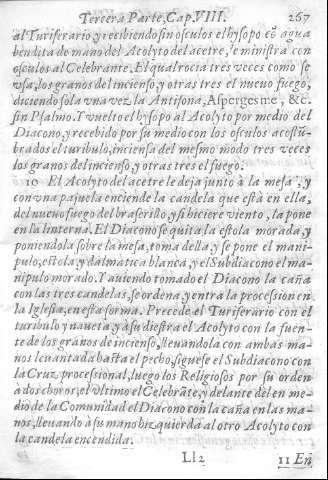 Tercera Parte, Cap. VIII. 267
al Turiferario, y recibiendo sin osculos el hysopo cõ agua
bendita de mano del Acolyto del acetre, le ministra con
osculos al Celebrante. El qual rocia tres veces como se
vsa, los granos del incienso, y otras tres el nuevo fuego,
diciendo sola vna vez la Antifona, Aspergesme, &c.
sin Psalmo. Y vuelto el hysopo al Acolyto por medio del
Diacono, y recebido por su medio con los osculos acostũ-
brados el turibulo, inciensa del mesmo modo tres veces
los granos del incienso, y otras tres el fuego.
10 El Acolyto del acetre le deja junto à la mesa, y
con vna pajuela enciende la candela que està en ella,
del nuevo fuego del braserillo, y si hiciere viento, la pone
en la linterna. El Diacono se quita la estola morada, y
poniendola sobre la mesa, toma della, y se pone el mani-
pulo, estola, y dalmatica blanca, y el Subdiacono el ma-
nipulo morado. Y auiendo tomado el Diacono la caña
con las tres candelas, se ordena, y entra la procession en
la Iglesia, en esta forma. Precede el Turiferario con el
turibulo y naueta, y à su diestra el Acolyto con la fuen-
te de los granos de incienso, llevandola con ambas ma-
nos levantada hasta el pecho, siguese el Subdiacono con
la Cruz processional, luego los Religiosos por su orden
à dos choros, el vltimo el Celebrãte, y delante del en me-
dio de la Comunidad el Diacono con la caña en las ma-
nos, llevando à su mano bizquierda al otro Acolyto con
la candela encendida.
Ll2 11 En